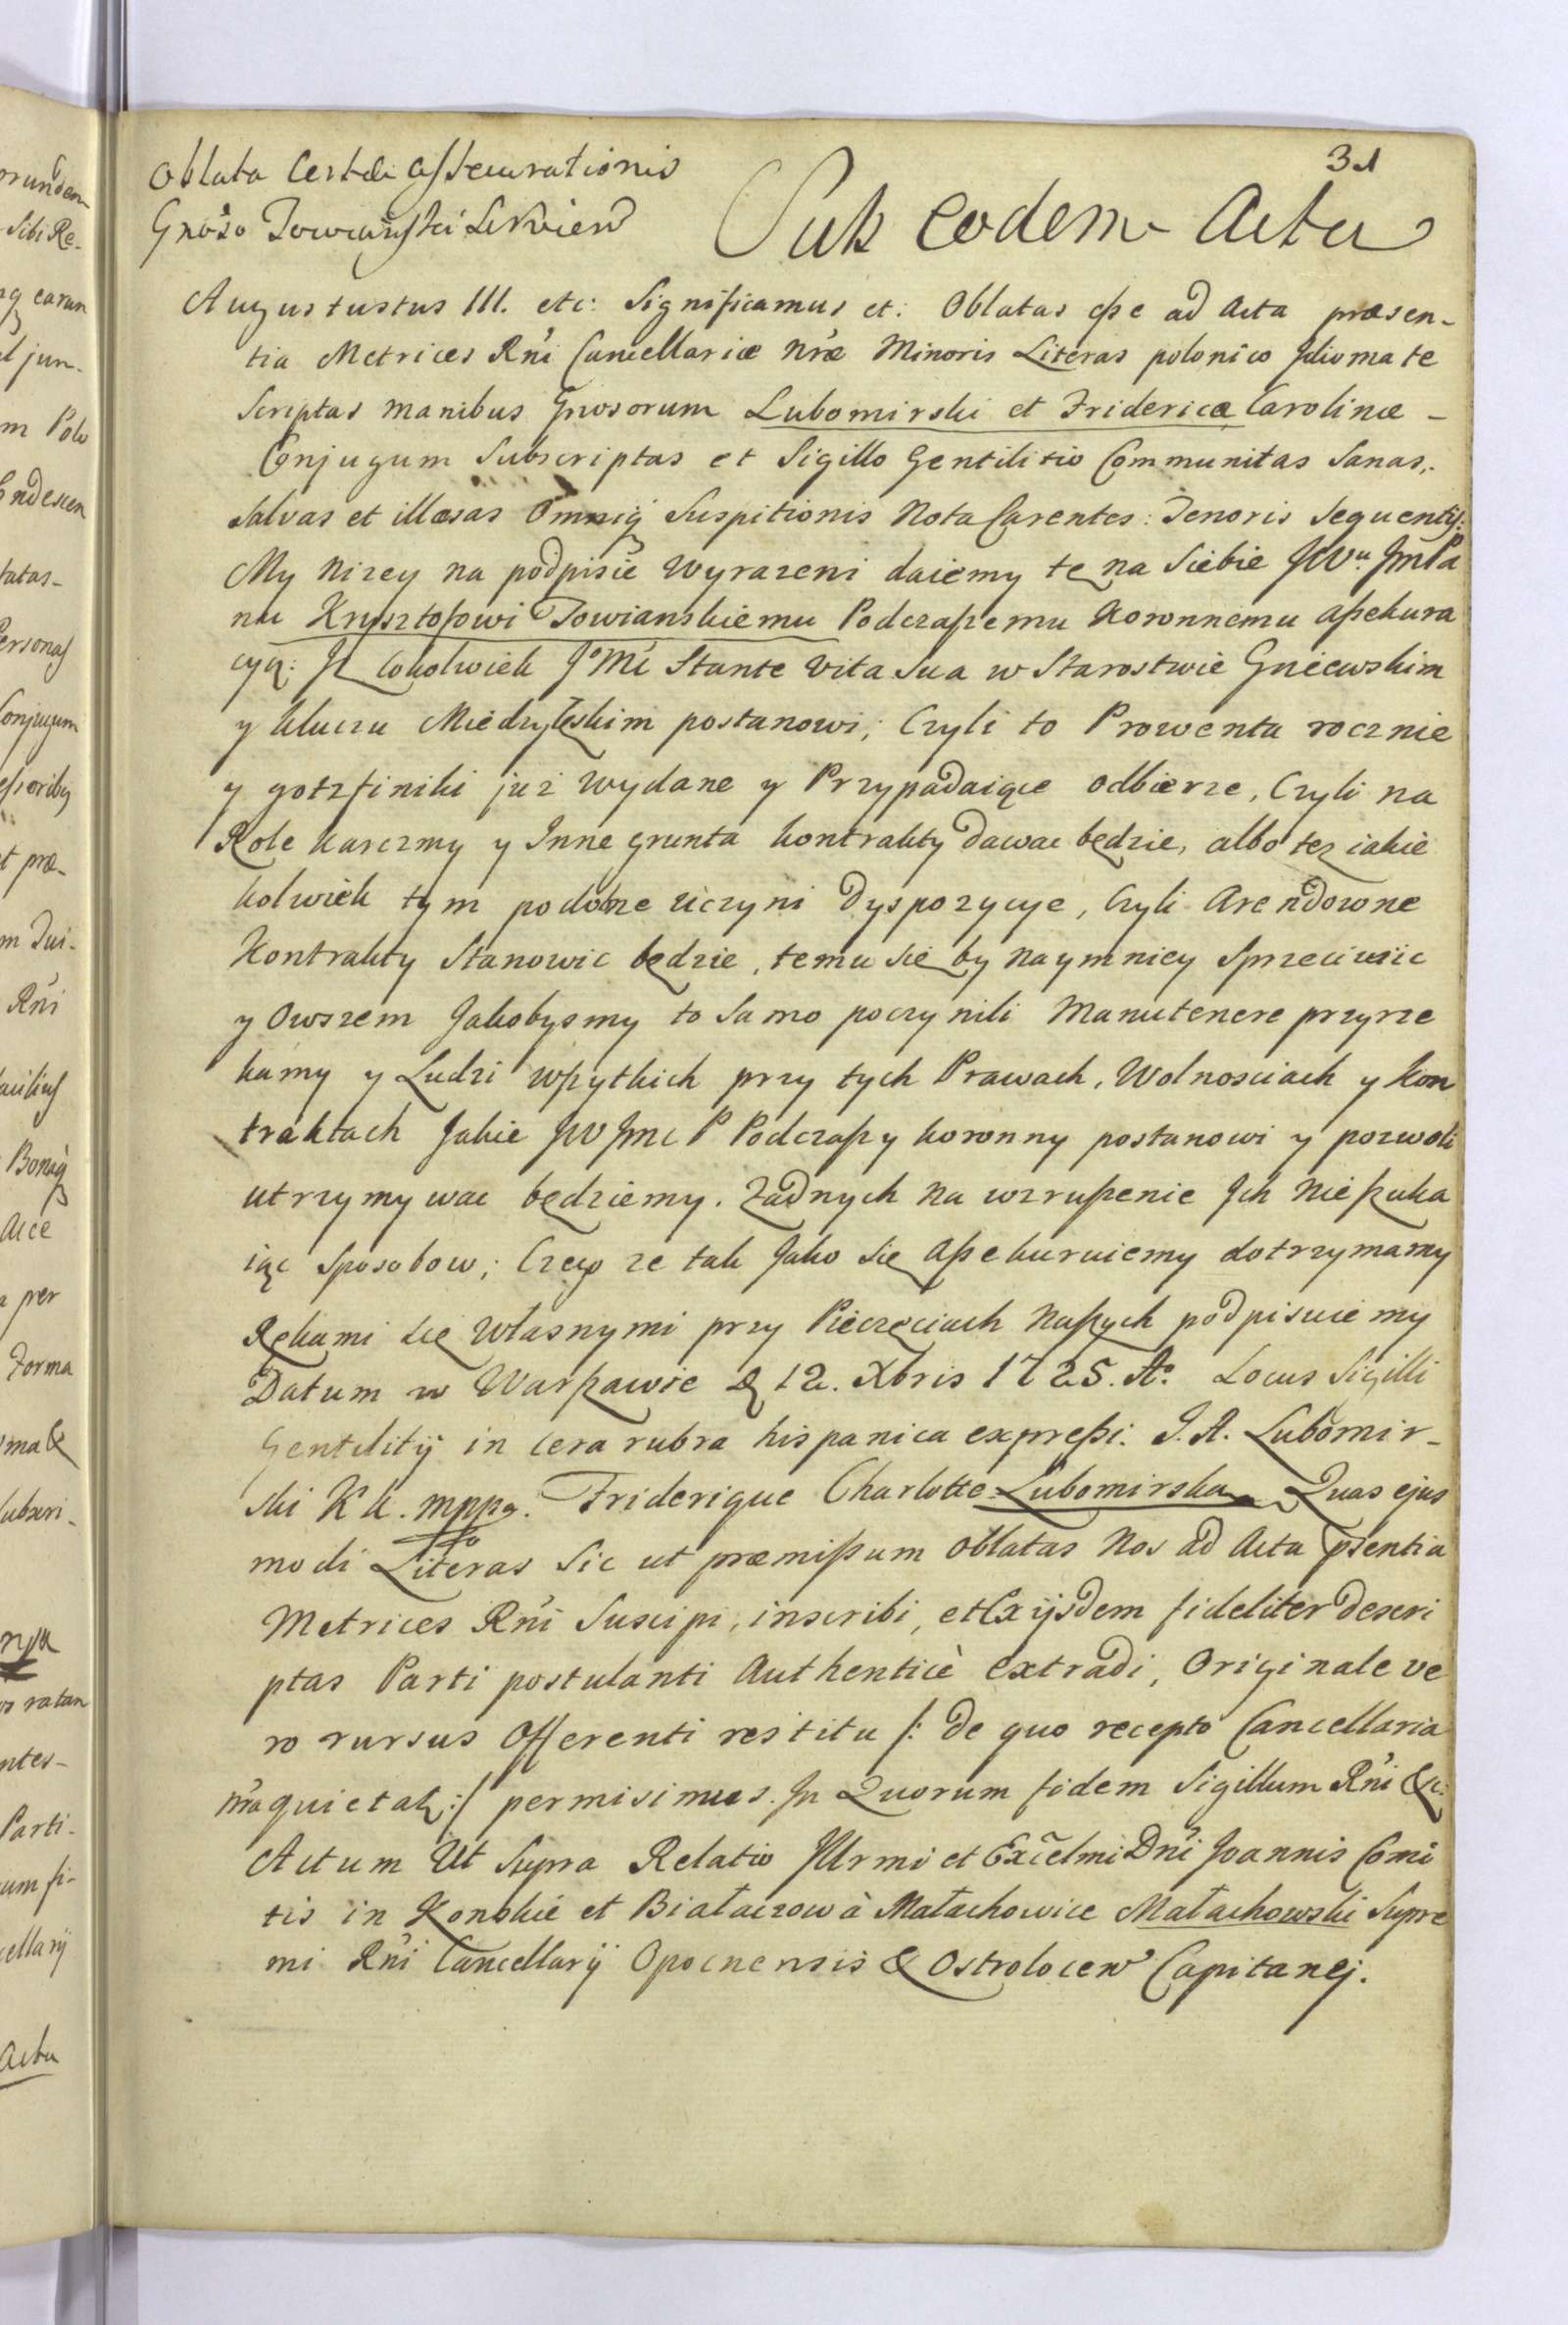 31
Oblata Certæ assecurationis
Gnoso Towiański
Sub eodem Actu
Augustustus III. etc: Significamus et: Oblatas eße ad Acta præsen-
tia Metrices Rñi Cancellariæ nræ Minoris Literas polonico Jdiomate
Scriptas manibus Gnosorum Lubomirski et Fridericæ Carolinæ -
Conjugum Subscriptas et Sigillo Gentilitio Communitas Sanas,
Salvas et illæsas Omniq Suspitionis Nota Carentes: Tenoris Sequentis:
My nizey na podpisie Wyrazeni daiemy te na Siebie JWu JmPa
nu Krysztofowi Towianskiemu Podczaßemu Koronnemu aßekura
cyą: Jz Cokolwiek JoMć Stante Vita Sua w Starostwie Gniewskim
y kluczu Miedzyłęskim postanowi; Czyli to Prowenta rocznie
y gotzfiniki juz wydane y Przypadaiące odbierze, Czyli na
Role karczmy y Inne grunta kontrakty dawac będzie, albo tez iakie
kolwiek tym podobne uczyni Dyspozycye, Czyli Arendowne
Kontrakty Stanowic będzie, temu się by naymniey Sprzeciwic
y Owszem Jakobysmy to Samo poczynili Manutenere przyrze
kamy y Ludzi wßytkich przy tych Prawach, Wolnosciach y kon
traktach Jakie JW Jmc P Podczaßy koronny postanowi y pozwoli
utrzymywac będziemy. Zadnych na wzrußenie Jch nießuka
iąc Sposobow; Czego ze tak Jako Się aßekuruiemy dotrzymamy
Rękami się własnymi przy Pieczęciach naßych podpisuiemy
Datum w Warßawie D 12. Xbris 1725. Ao. Locus Sigilli
Gentilitij in cera rubra hispanica expreßi. J. A. Lubomir-
ski K k. mppa. Friderique Charlotte Lubomirska Quas ejus
modi Literas Sic ut præmißum oblatas Nos ad Acta psentia
Metrices Rñi Suscipi, inscribi, et Ex ijsdem fideliter descri
ptas Parti postulanti Authenticè extradi, Originale ve
ro rursus Offerenti restitui /: de quo recepto Cancellaria
nra quietat :/ permisimus. Jn Quorum fidem Sigillum Rñi &c:
Actum Ut Supra Relatio Jllrmi et Excelmi Dñi Joannis Comi
tis in Konskie et Białaczow à Małachowice Małachowski Supre
mi Rñi Cancellarij Opocnensis & Ostrolocen Capitanej.